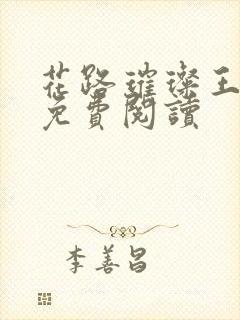 花路璀璨王
免費閱讀
李善昌